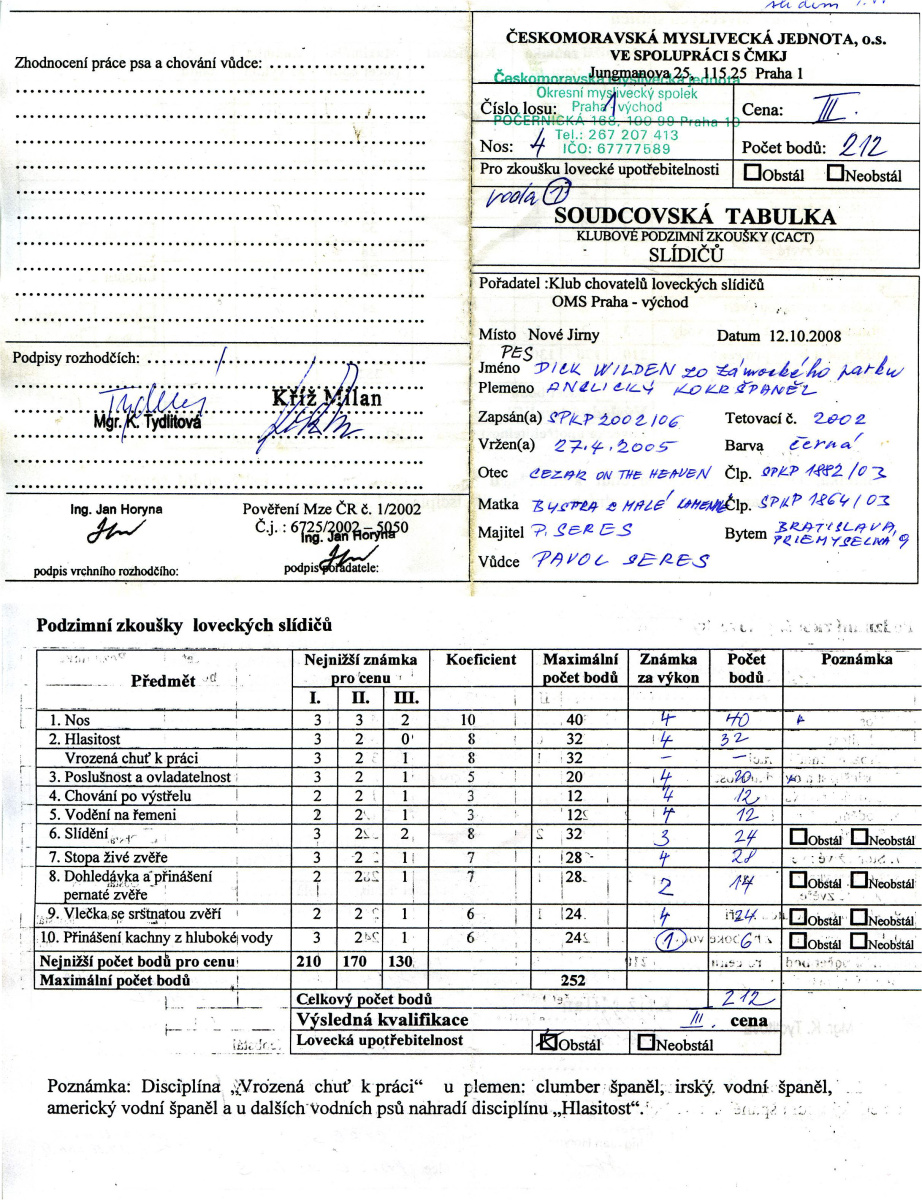 Zhodnocení práce psa a chování vůdce:
Podpisy rozhodčích:
Mgr. K. Tydlitová
Kříž Milan
Ing. Jan Horyna
podpis vrchního rozhodčího:
Pověření Mze ČR č. 1/2002
Č.j. : 6725/2002 – 5050
Ing. Jan Horyna
podpis pořadatele:
ČESKOMORAVSKÁ MYSLIVECKÁ JEDNOTA, o.s.
VE SPOLUPRÁCI S ČMKJ
Jungmanova 25, 115 25 Praha 1
Českomoravská myslivecká jednota
Okresní myslivecký spolek
Praha - východ
POČERNICKÁ 168, 100 99 Praha 10
Tel.: 267 207 413
IČO: 67777589
Číslo losu: 1
Cena: III.
Nos: 4
Počet bodů: 212
Pro zkoušku lovecké upotřebitelnosti
Obstál Neobstál
voda 1
SOUDCOVSKÁ TABULKA
KLUBOVÉ PODZIMNÍ ZKOUŠKY (CACT)
SLÍDIČŮ
Pořadatel :Klub chovatelů loveckých slídičů
OMS Praha - východ
Místo Nové Jirny Datum 12.10.2008
PES
Jméno DICK WILDEN zo zámockého parku
Plemeno ANGLICKÝ KOKRŠPANĚL
Zapsán(a) SPKP 2002/06 Tetovací č. 2002
Vržen(a) 27.4.2005 Barva černá
Otec CEZAR ON THE HEAVEN Člp. SPKP 1882/03
Matka BYSTRA Z MALÉ Člp. SPKP 1864/03
Majitel P. SERES Bytem BRATISLAVA,
PRIEMYSELNÁ 9
Vůdce PAVOL SERES
Podzimní zkoušky loveckých slídičů
Předmět Nejnižší známka pro cenu Koeficient Maximální počet bodů Známka za výkon Počet bodů Poznámka
I. II. III.
1. Nos 3 3 2 10 40 4 40
2. Hlasitost 3 2 0 8 32 4 32
Vrozená chuť k práci 3 2 1 8 32 – –
3. Poslušnost a ovladatelnost 3 2 1 5 20 4 20
4. Chování po výstřelu 2 2 1 3 12 4 12
5. Vodění na řemeni 2 2 1 3 12 4 12
6. Slídění 3 2 2 8 32 3 24 Obstál Neobstál
7. Stopa živé zvěře 3 2 1 7 28 4 28
8. Dohledávka a přinášení pernaté zvěře 2 2 1 7 28 2 14 Obstál Neobstál
9. Vlečka se srstnatou zvěří 2 2 1 6 24 4 24 Obstál Neobstál
10. Přinášení kachny z hluboké vody 3 2 1 6 24 1 6 Obstál Neobstál
Nejnižší počet bodů pro cenu 210 170 130
Maximální počet bodů 252
Celkový počet bodů 212
Výsledná kvalifikace III. cena
Lovecká upotřebitelnost Obstál Neobstál
Poznámka: Disciplína „Vrozená chuť k práci“ u plemen: clumber španěl, irský vodní španěl,
americký vodní španěl a u dalších vodních psů nahradí disciplínu „Hlasitost“.